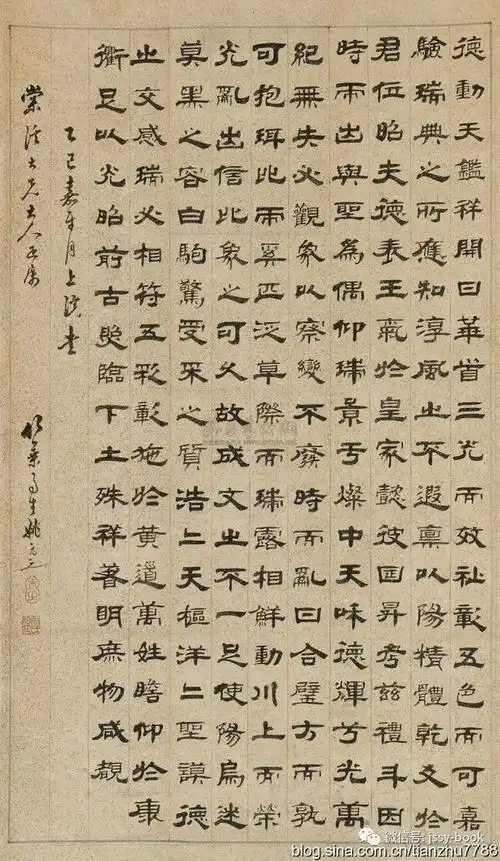 德動天鑑祥開日華首三光而效祉彰五色而可嘉
驗瑞典之所應知淳風之不遐稟以陽精體乾爻於
君位昭夫德表王氣於皇家懿彼因昇考茲禮斗因
時而出與聖為偶仰瑞景兮燦中天咏德輝兮光萬
紀無失必觀象以察變不廢時而亂日合璧方而孰
可抱珥比而奚匹泛草際而珠露相鮮動川上而榮
光亂出信比象之可久故成文之不一足使陽烏迷
莫黑之容白駒驚受采之質浩二天樞洋二聖謨德
之交感瑞必相符五彩彰施於黃道萬姓瞻仰於康
衢足以光昭前古照臨下土殊祥著明庶物咸覩
乙巳嘉平月上浣書
大兄大人
竹葉亭生姚元之
微信号: jssy-book
blog.sina.com.cn/tianzhu7788